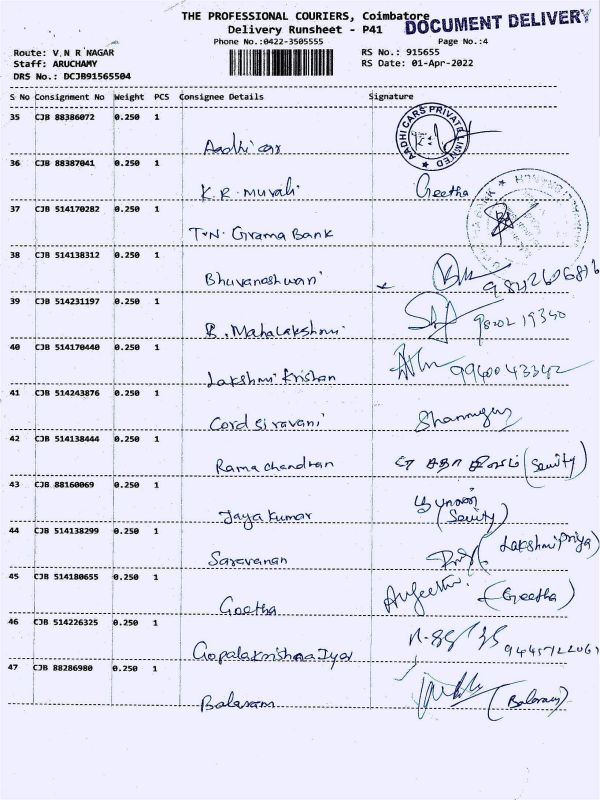 THE PROFESSIONAL COURIERS, Coimbatore
DOCUMENT DELIVERY
Delivery Runsheet - P41
Phone No.:0422-3505555
Page No.:4
Route: V N R NAGAR
RS No.: 915655
Staff: ARUCHAMY
RS Date: 01-Apr-2022
DRS No.: DCJB91565504
S No Consignment No Weight PCS Consignee Details Signature
35 CJB 88386072 0.250 1
AADHI CARS PRIVATE LIMITED
Aadhi car
36 CJB 88387041 0.250 1
K.R. Murali Geetha
37 CJB 514170282 0.250 1
T.N. Grama Bank
38 CJB 514138312 0.250 1
Bhuvaneshwari 9842606816
39 CJB 514231197 0.250 1
B. Mahalakshmi
40 CJB 514170440 0.250 1
Lakshmi Krishan 9940043342
41 CJB 514243876 0.250 1
Cord siravani
42 CJB 514138444 0.250 1
Rama chandran
43 CJB 88160069 0.250 1
Jaya Kumar
44 CJB 514138299 0.250 1
Saravanan (Lakshmi Priya)
45 CJB 514180655 0.250 1
Geetha (Geetha)
46 CJB 514226325 0.250 1
Gopalakrishnan Iyar
47 CJB 88286980 0.250 1
Balaram (Balaram)